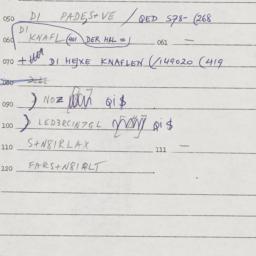 050 DI PADE,S+VE / QED 598- (268
DI
060 KNAFL (001 DER HLL =) 061 —
070 + DI HEXE KNAFLEN (/149020 (419
080
090 ) NOZ QI $
100 ) LED3RCIN7GL QI $
110 S+N8IRLAX 111 —
120 FARS+N8IRLT